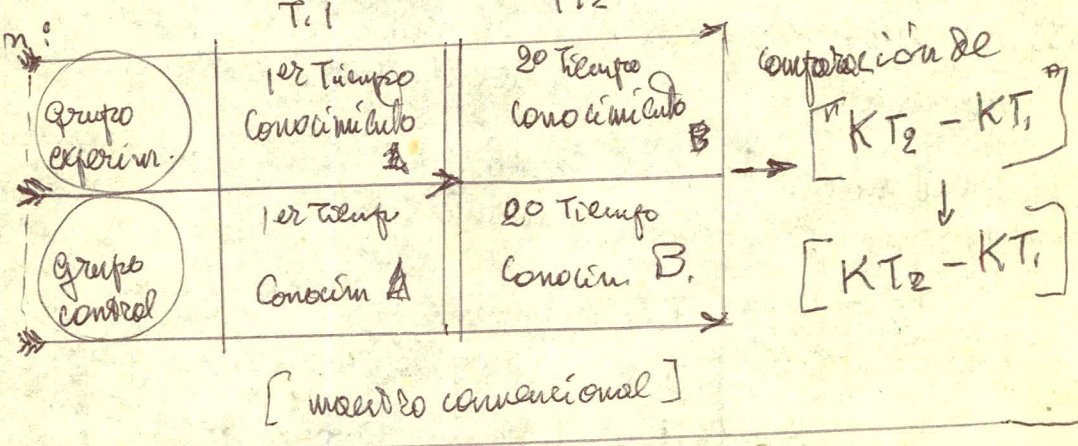 T.1
T.2
n:
Grupo
experim.
1er Tiempo
Conocimiento
A
2o Tiempo
Conocimiento
B
comparación de
["KT2 - KT1"]
Grupo
control
1er Tiemp
Conocim A
2o Tiempo
Conocim. B.
[KT2 - KT1]
[maestro convencional]